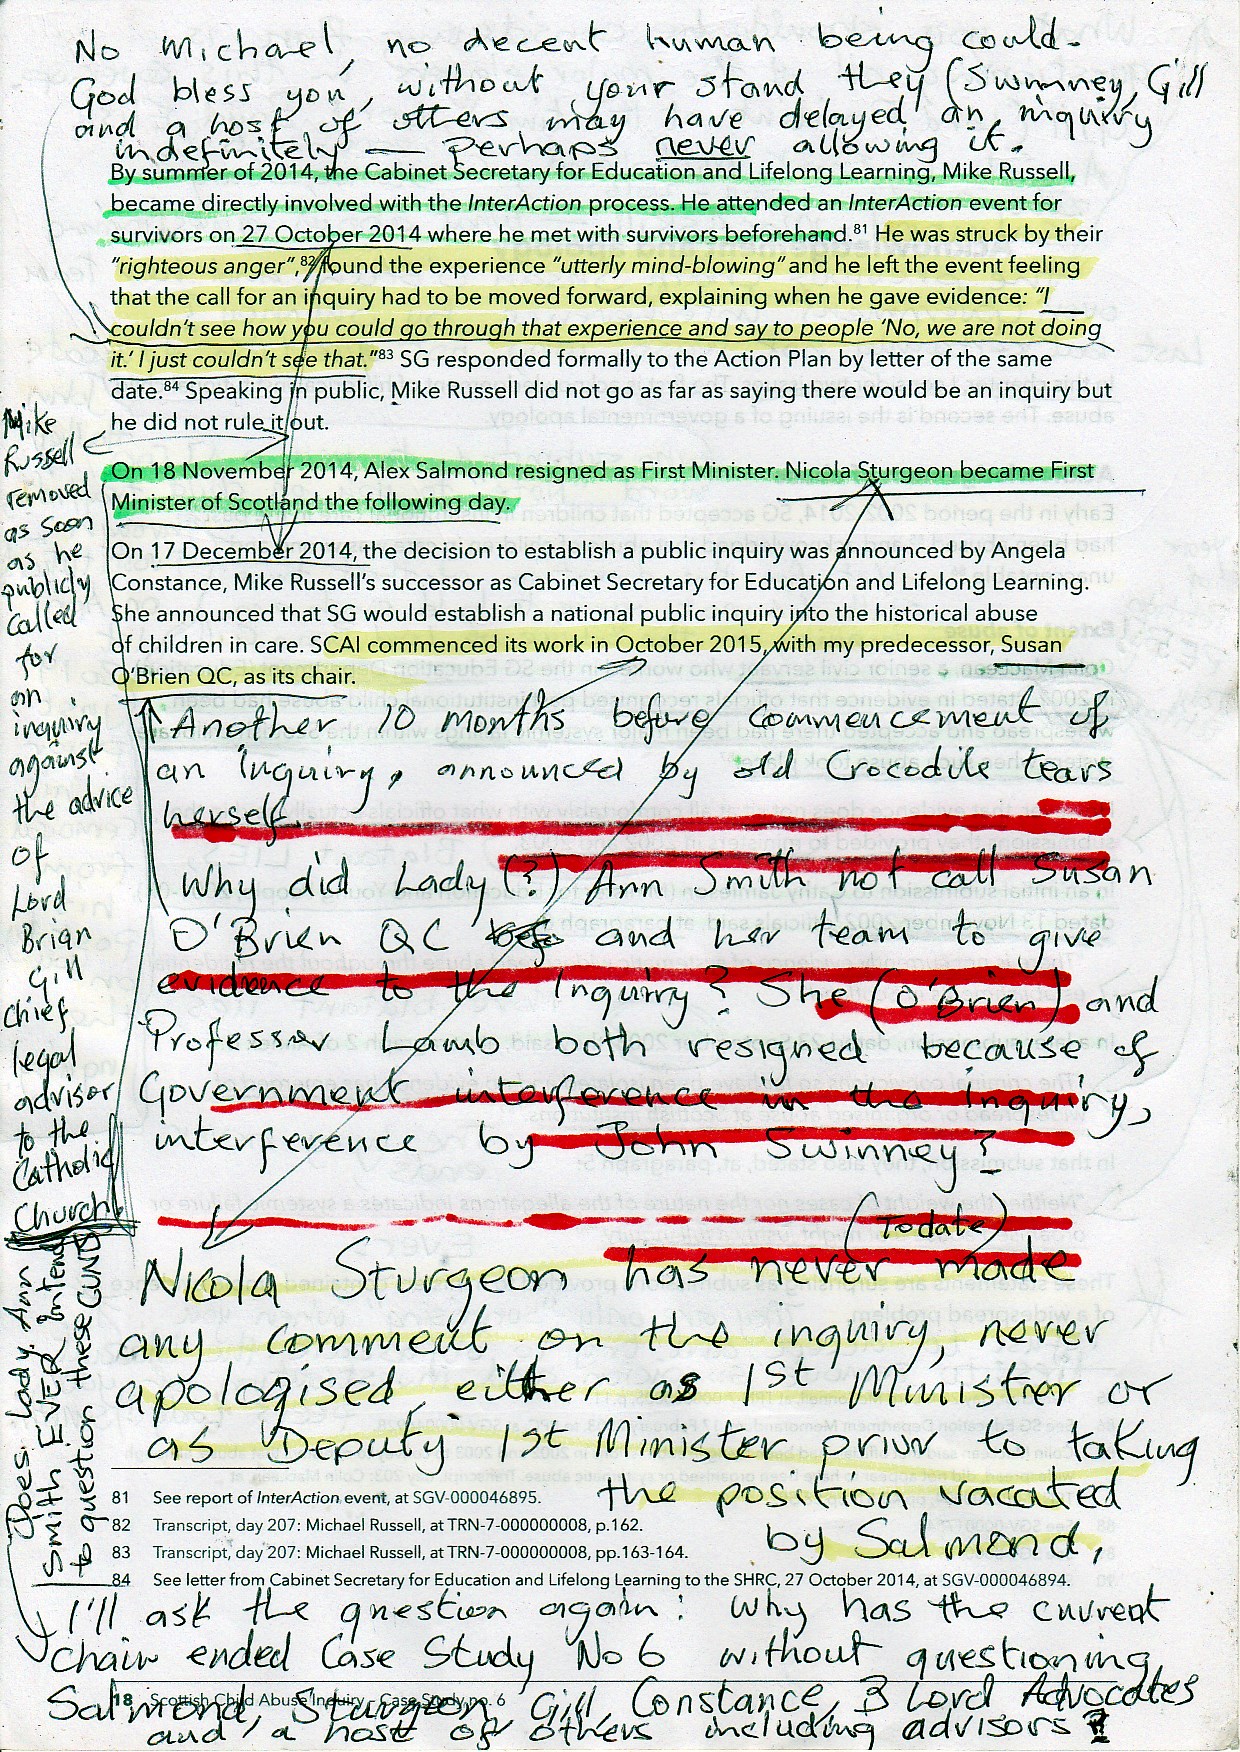 No Michael, no decent human being could.
God bless you, without your stand they (Swinney, Gill
and a host of others may have delayed an inquiry
indefinitely — perhaps never allowing it.
By summer of 2014, the Cabinet Secretary for Education and Lifelong Learning, Mike Russell,
became directly involved with the InterAction process. He attended an InterAction event for
survivors on 27 October 2014 where he met with survivors beforehand.⁸¹ He was struck by their
“righteous anger”,⁸² found the experience “utterly mind-blowing” and he left the event feeling
that the call for an inquiry had to be moved forward, explaining when he gave evidence: “I
couldn’t see how you could go through that experience and say to people ‘No, we are not doing
it.’ I just couldn’t see that.”⁸³ SG responded formally to the Action Plan by letter of the same
date.⁸⁴ Speaking in public, Mike Russell did not go as far as saying there would be an inquiry but
he did not rule it out.
On 18 November 2014, Alex Salmond resigned as First Minister. Nicola Sturgeon became First
Minister of Scotland the following day.
On 17 December 2014, the decision to establish a public inquiry was announced by Angela
Constance, Mike Russell’s successor as Cabinet Secretary for Education and Lifelong Learning.
She announced that SG would establish a national public inquiry into the historical abuse
of children in care. SCAI commenced its work in October 2015, with my predecessor, Susan
O’Brien QC, as its chair.
Mike
Russell
removed
as soon
as he
publicly
called
for
an
inquiry
against
the advice
of
Lord
Brian
Gill
Chief
legal
advisor
to the
Catholic
Church
Does Lady Ann
Smith EVER intend
to question these CUNTS
Another 10 months before commencement of
an Inquiry, announced by old Crocodile tears
herself.
Why did Lady (?) Ann Smith not call Susan
O'Brien QC and her team to give
evidence to the Inquiry? She (O'Brien) and
Professor Lamb both resigned because of
Government interference in the Inquiry,
interference by John Swinney?
(To date)
Nicola Sturgeon has never made
any comment on the inquiry, never
apologised either as 1st Minister or
as Deputy 1st Minister prior to taking
the position vacated
by Salmond,
81 See report of InterAction event, at SGV-000046895.
82 Transcript, day 207: Michael Russell, at TRN-7-000000008, p.162.
83 Transcript, day 207: Michael Russell, at TRN-7-000000008, pp.163-164.
84 See letter from Cabinet Secretary for Education and Lifelong Learning to the SHRC, 27 October 2014, at SGV-000046894.
I'll ask the question again: Why has the current
chair ended Case Study No 6 without questioning
Salmond, Sturgeon, Gill, Constance, 3 Lord Advocates
and a host of others including advisors?
18 Scottish Child Abuse Inquiry – Case Study no. 6